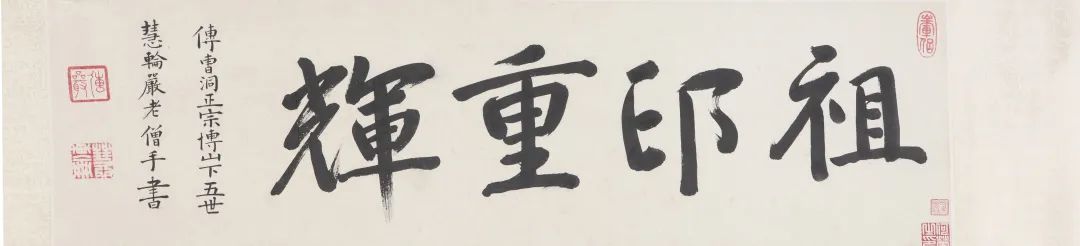 祖印重輝
傳曹洞正宗博山下五世
慧輪嚴老僧手書